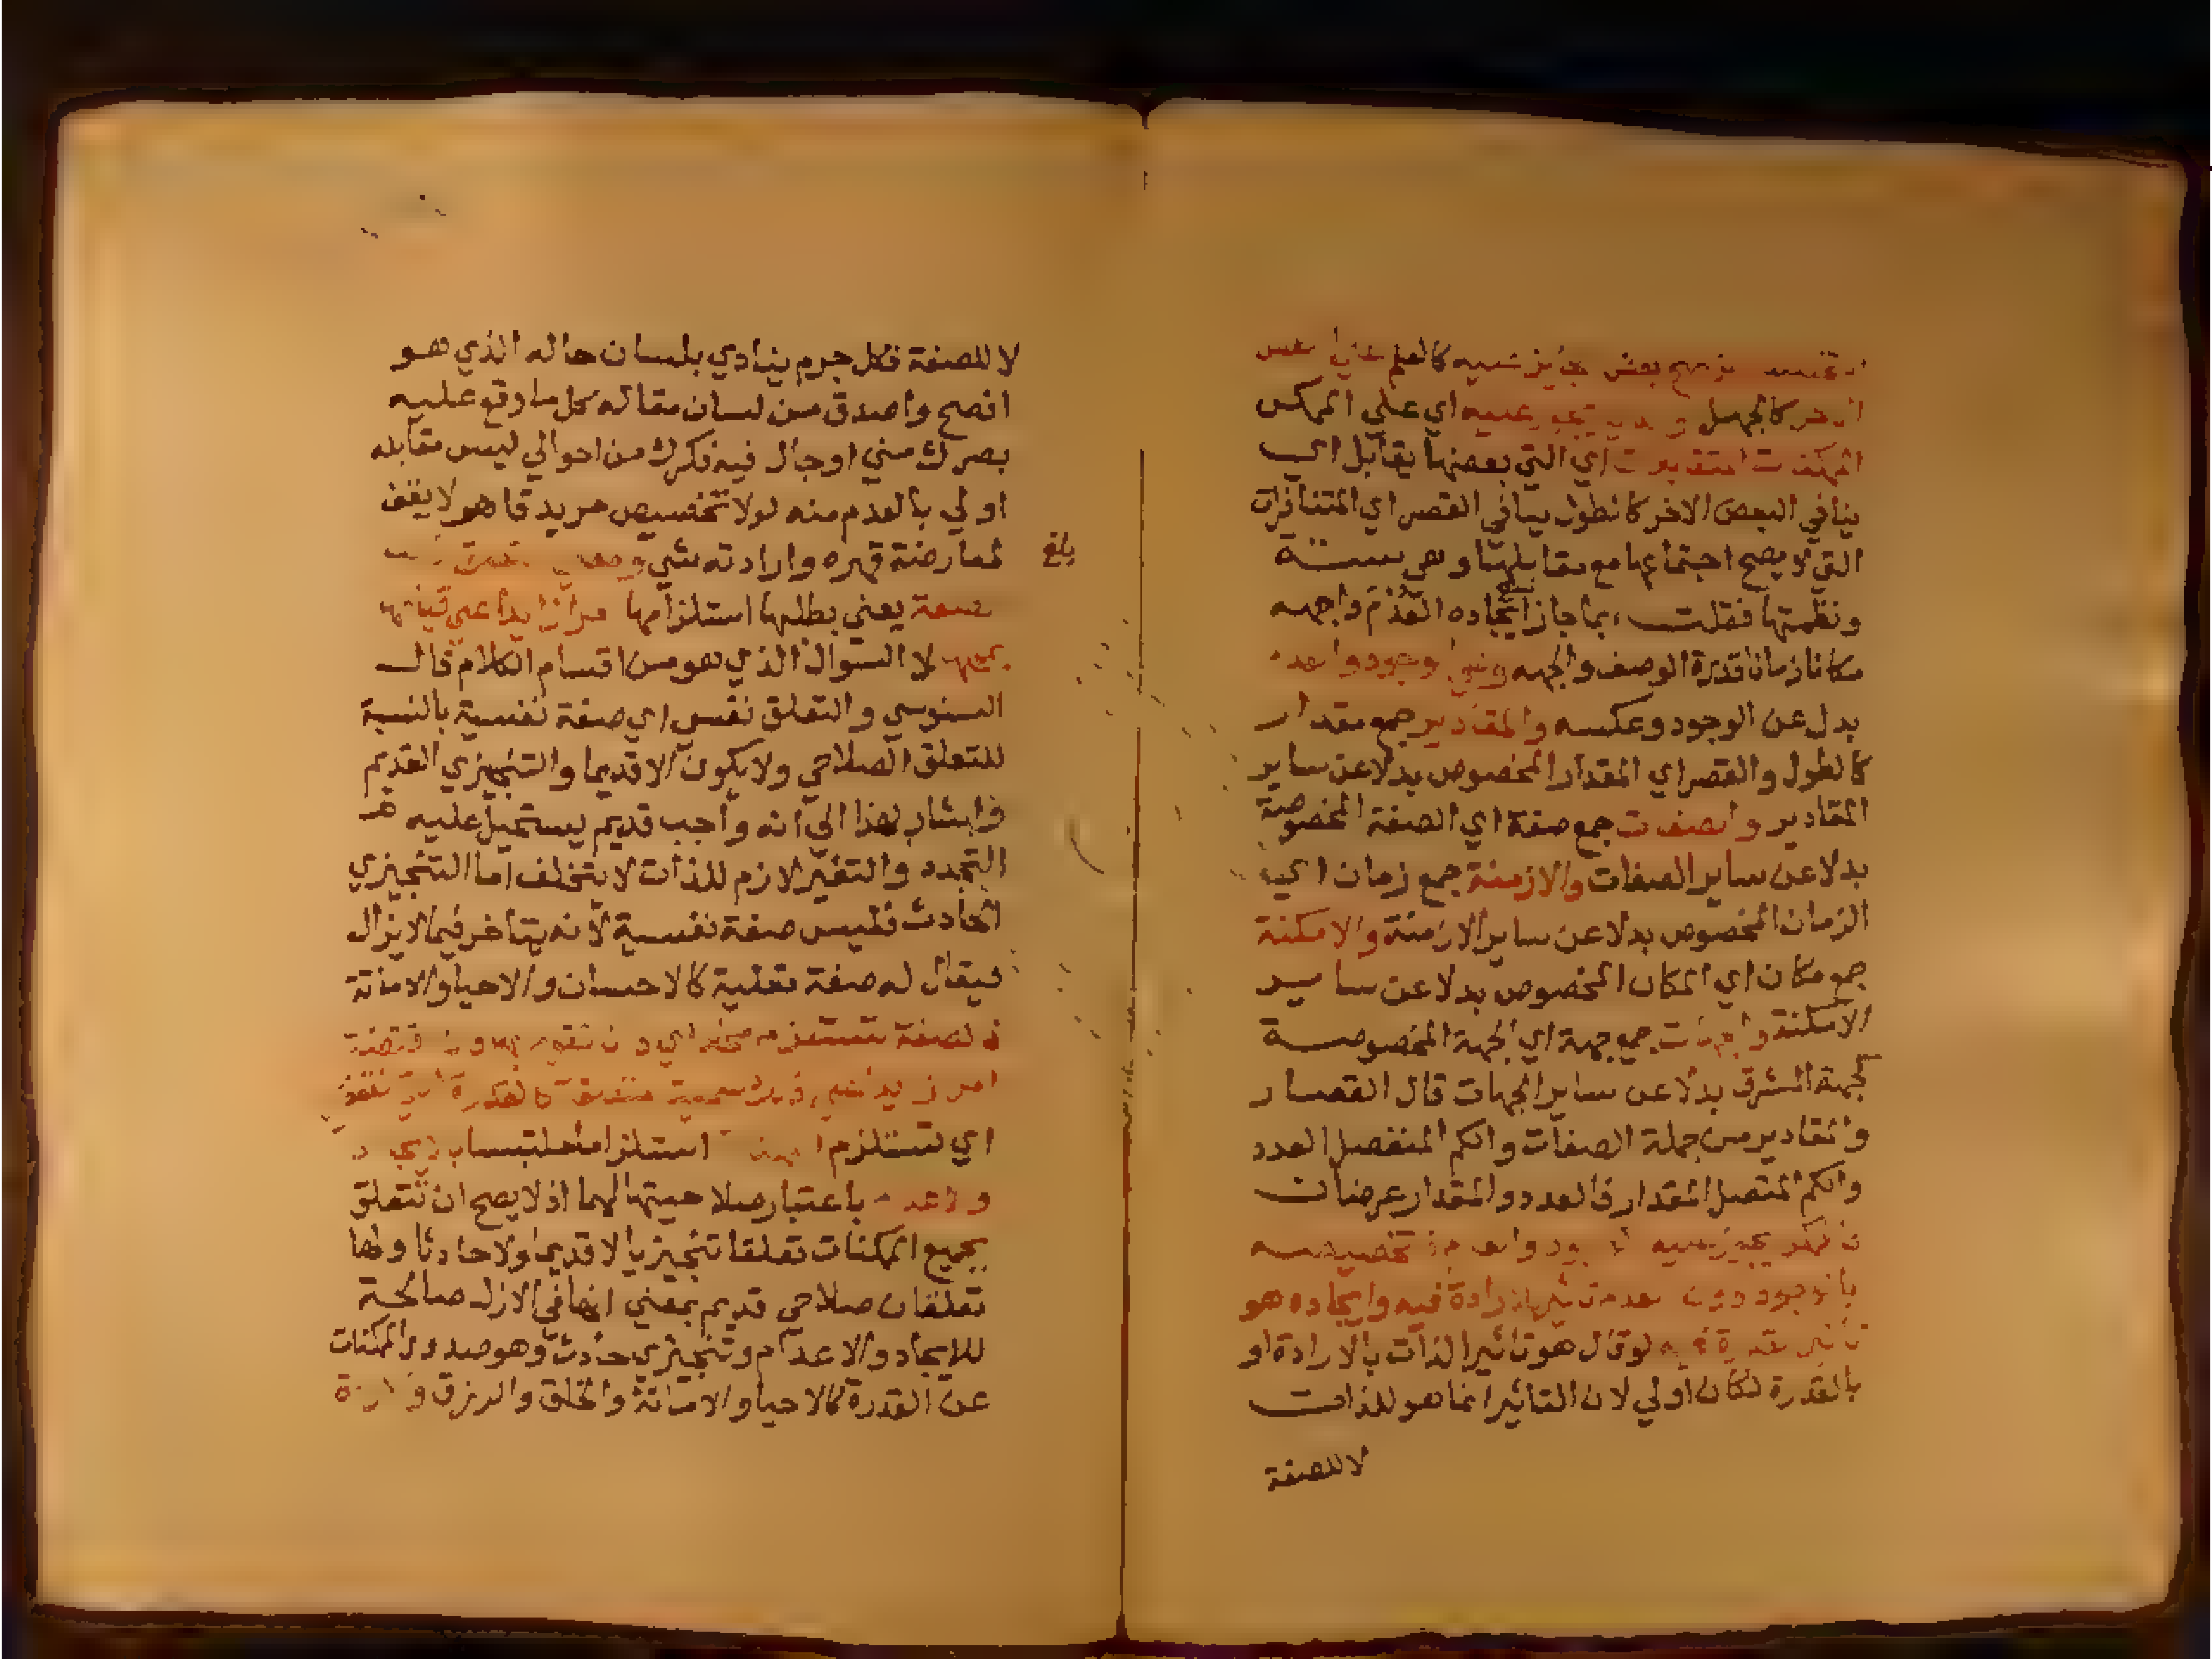 بعض يجايز عليه كالعلم علي بعض
كالجهل اي علي الممكن
الممكنات المتقابلات اي التي بعضها يقابل اي
ينافي البعض الاخر كالطول ينافي القصر اي المتنافرات
التي لا يصح اجتماعها مع مقابلها وهي ستة
ونظمتها فقلت بما جاز ايجاده العدم واجهه
مكانا زمانا قدرة الوصف والجهه وهي الوجود والعدم
بدل عن الوجود وعكسه والمقادير جمع مقدار
كالطول والقصر اي المقدار المخصوص بدلا عن ساير
المقادير والصفات جمع صفة اي الصفة المخصوصة
بدلا عن ساير الصفات والازمنة جمع زمان اي
الزمان المخصوص بدلا عن ساير الازمنة والامكنة
جمع مكان اي المكان المخصوص بدلا عن ساير
الامكنة والجهات جمع جهة اي الجهة المخصوصة
كجهة المشرق بدلا عن ساير الجهات قال القصار
والمقادير من جملة الصفات والكم المنفصل العدد
والكم المتصل المقدار فالعدد والمقدار عرضان
تخصيصه
بالوجود دون العدم تاثير الارادة فيه وايجاده هو
تاثير القدرة فيه لو قال هو تاثير الذات بالارادة او
بالقدرة لكان اولي لان التاثير انما هو للذات
لا للصفة
لا للصفة فكل جرم ينادي بلسان حاله الذي هو
افصح واصدق من لسان مقاله كل ما وقع عليه
بصرك مني اوجال فيه فكرك من احوالي ليس مقابله
اولي بالعدم منه لولا تخصيص مريد قاهر لا يقف
لمعارضة قهره وارادته شي
بلغ
يعني بطلبها استلزامها امرا زايدا علي قيامها
بمحلها لا السوال الذي هو من اقسام الكلام قال
السنوسي والتعلق نفسي اي صفة نفسية بالنسبة
للتعلق الصلاحي ولا يكون الا قديما والتنجيزي القديم
فاشار لهذا الي انه واجب قديم يستحيل عليه
التجدد والتغير لازم للذات لا يتخلف اما التنجيزي
الحادث فليس صفة نفسية لانه يتاخر فيما لا يزال
فيقال له صفة فعلية كالاحسان والاحيا والاماتة
فالصفة تستلزم
كالقدرة
اي تستلزم استلزاما ملتبسا بالايجاد
والاعدام باعتبار صلاحيتها لهما اذ لا يصح ان تتعلق
بجميع الممكنات تعلقا تنجيزيا لا قديما ولا حادثا ولها
تعلقان صلاحي قديم بمعني انها في الازل صالحة
للايجاد والاعدام وتنجيزي حادث وهو صدور الممكنات
عن القدرة كالاحيا والاماتة والخلق والرزق